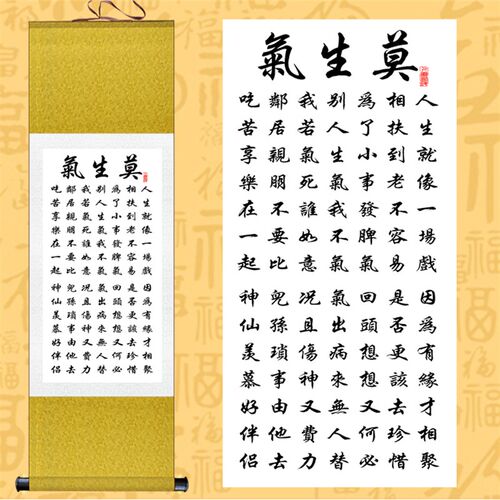 莫生氣
人生就像一場戲 因為有緣才相聚
相扶到老不容易 是否更該去珍惜
為了小事發脾氣 回頭想想又何必
別人生氣我不氣 氣出病來無人替
我若氣死誰如意 況且傷神又費力
鄰居親朋不要比 兒孫瑣事由他去
吃苦享樂在一起 神仙羨慕好伴侶
莫生氣
人生就像一場戲 因為有緣才相聚
相扶到老不容易 是否更該去珍惜
為了小事發脾氣 回頭想想又何必
別人生氣我不氣 氣出病來無人替
我若氣死誰如意 況且傷神又費力
鄰居親朋不要比 兒孫瑣事由他去
吃苦享樂在一起 神仙羨慕好伴侶
福